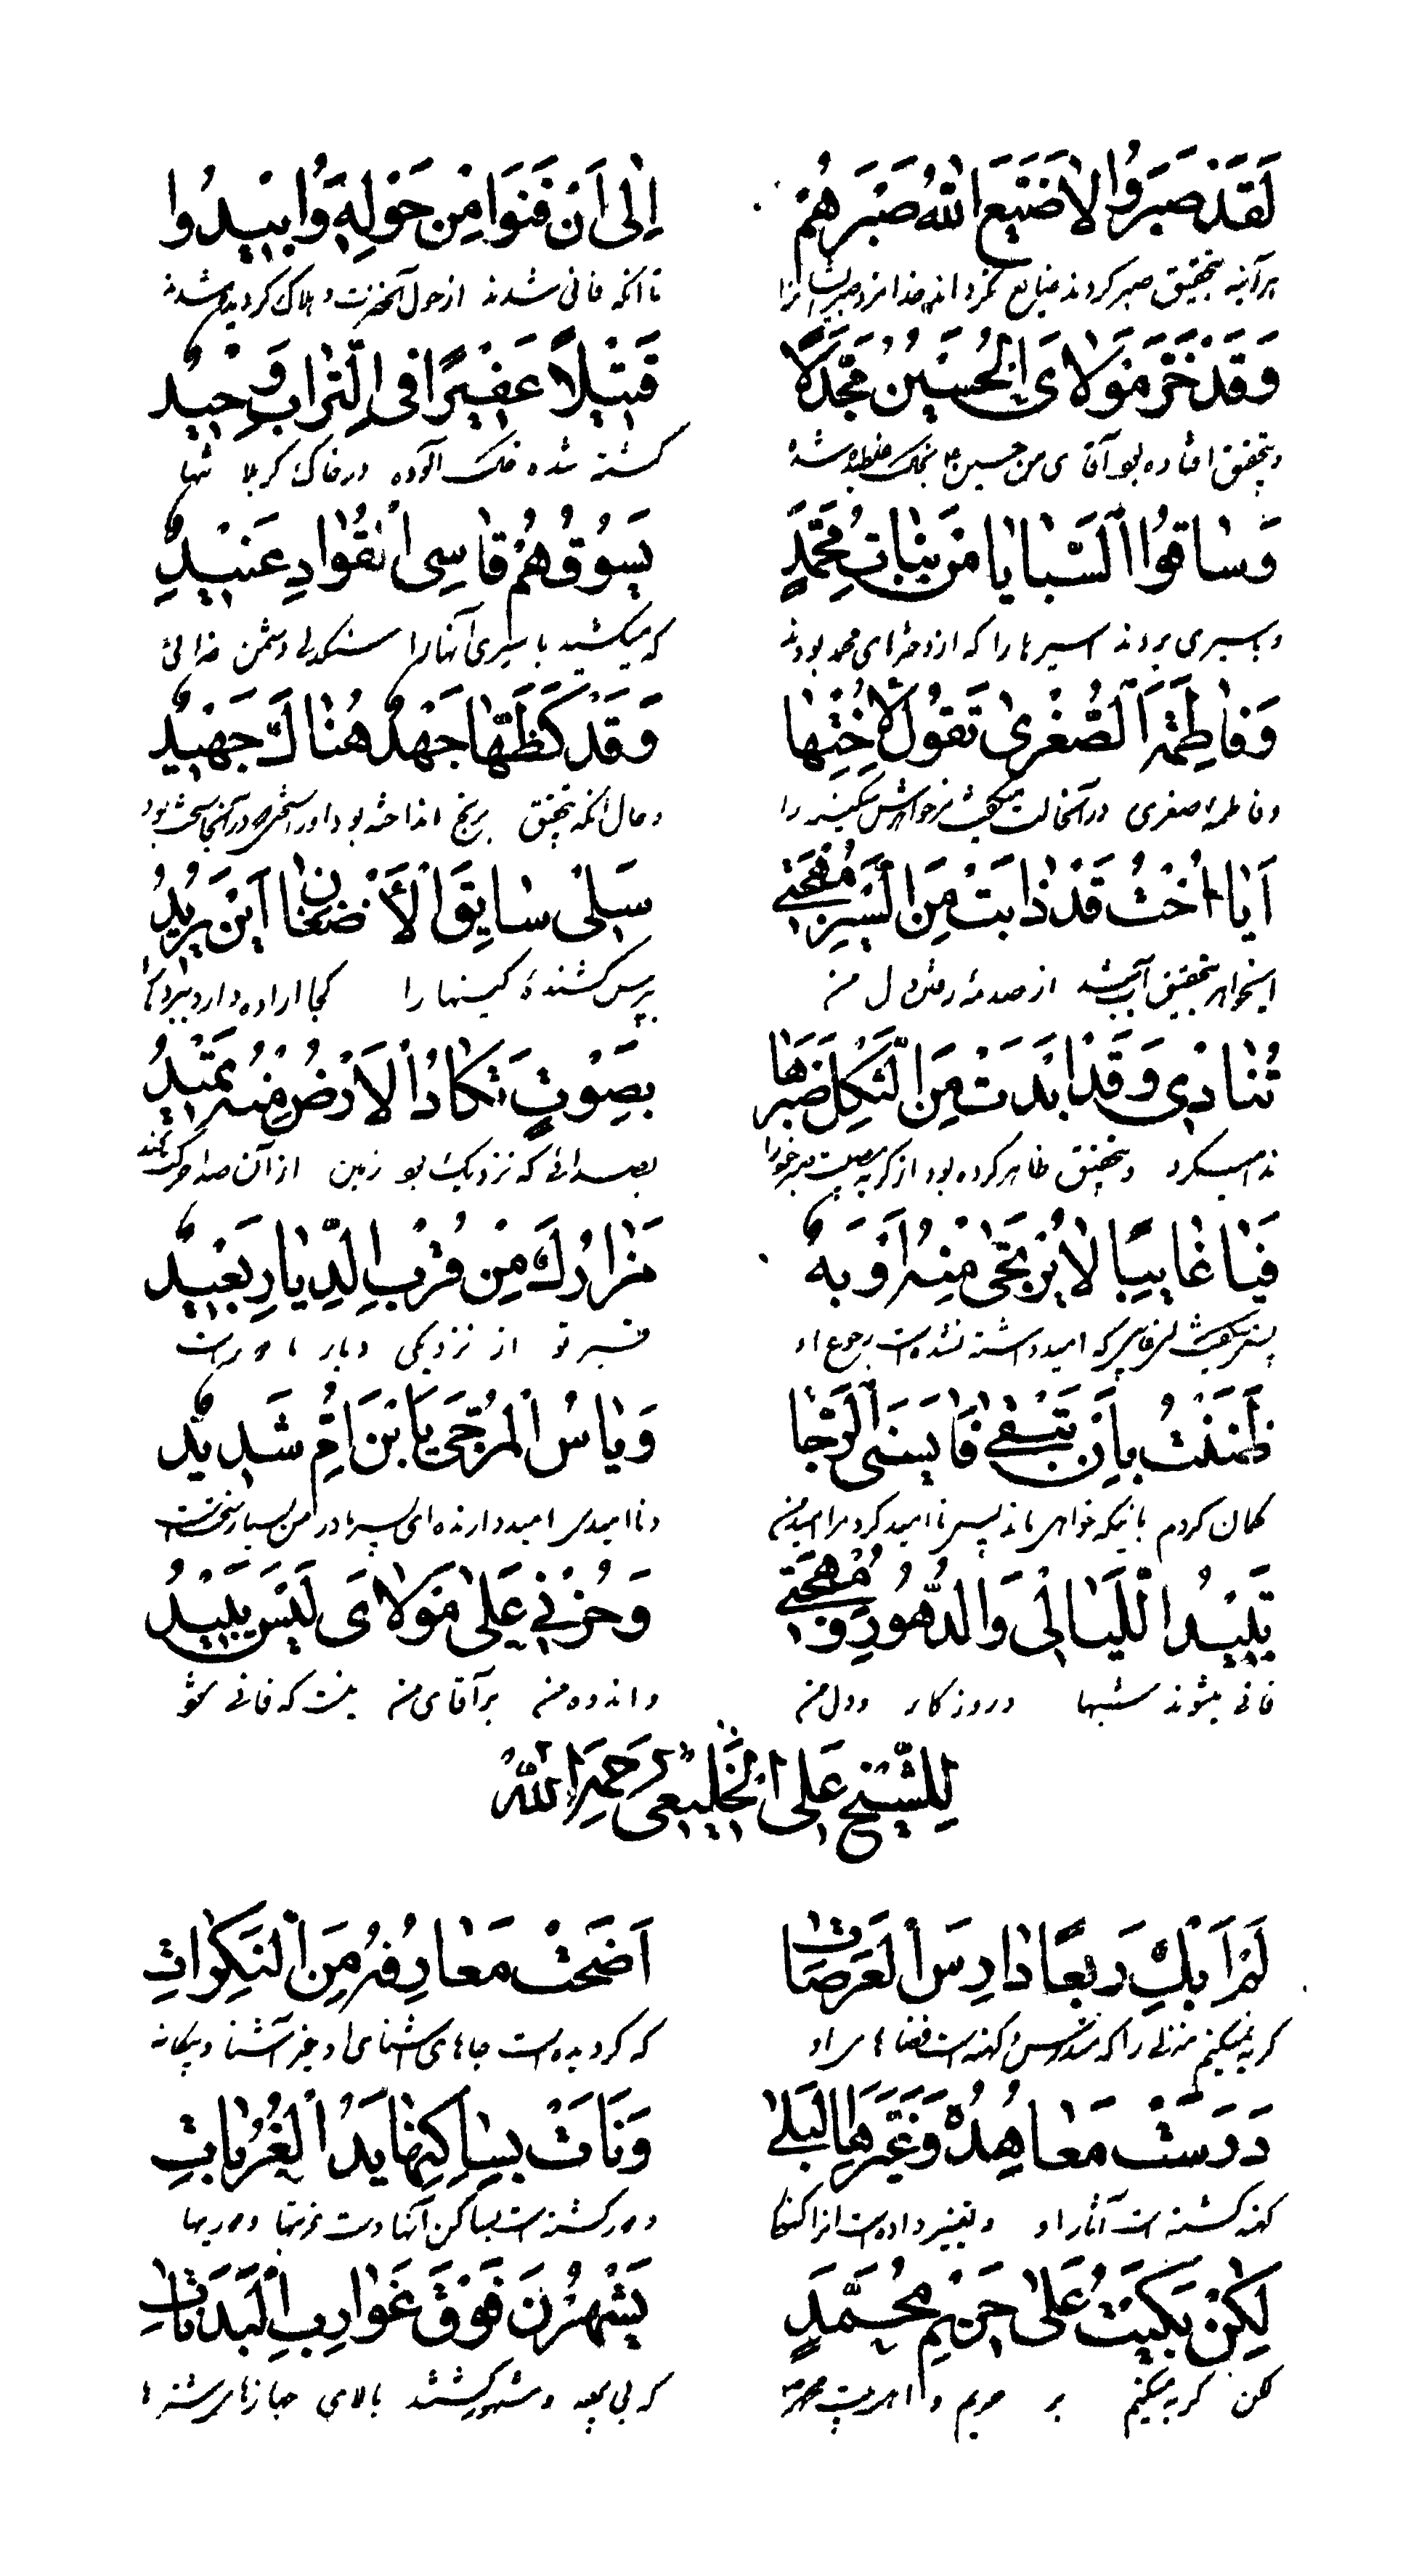 لَقَدْ صَبَرُوا لَا ضَيَّعَ اللهُ صَبْرَهُمْ إِلَى أَنْ فَنَوْا مِنْ حَوْلِهِ وَأُبِيدُوا
هرآینه بتحقیق صبر کردند ضایع نگرداند خدا مزد صبر ایشانرا تا آنکه فانی شدند از حول آنحضرت و هلاک گردیده شدند
وَقَدْ خَرَّ مَوْلَايَ الْحُسَيْنُ مُجَدَّلًا قَتِيلًا عَفِيرًا فِي التُّرَابِ وَحِيدُ
و بتحقیق افتاده بود آقای من حسین بخاک غلطیده شده کشته شده خاک آلوده در خاک کربلا تنها
وَسَاقُوا السَّبَايَا مِنْ بَنَاتِ مُحَمَّدٍ يَسُوقُهُمْ قَاسِي الْفُوَادِ عَنِيدُ
و باسیری بردند اسیرها را که از دخترهای محمد بودند که میکشید باسیری آنها را سنگدلی دشمن خدائی
وَفَاطِمَةُ الصُّغْرَى تَقُولُ لِأُخْتِهَا وَقَدْ كَظَّهَا جَهْدٌ هُنَاكَ جَهِيدُ
و فاطمه صغری در آنحالت میگفت بخواهرش سکینه را و حال آنکه بتحقیق برنج انداخته بود او را
أَيَا أُخْتُ قَدْ ذَابَتْ مِنَ السَّيْرِ مُهْجَتِي سَلِي سَايِقَ الْأَضْغَانِ أَيْنَ يُرِيدُ
ایخواهر بتحقیق آب شد از صدمه رفتن دل من بپرس کشنده کینها را کجا اراده دارد
تُنَادِي وَقَدْ أَبْدَتْ مِنَ الثُّكْلِ ضَبْرَهَا بِصَوْتٍ تَكَادُ الْأَرْضُ مِنْهُ تَمِيدُ
ندا میکرد و بتحقیق ظاهر کرده بود از بصدائی که نزدیک بود زمین از آن صدا حرکت کند
فَيَا غَايِبًا لَا يُرْتَجَى مِنْهُ أَوْبَةٌ مَزَارُكَ مِنْ قُرْبِ الدِّيَارِ بَعِيدُ
امید داشته نشده است رجوع او قبر تو از نزدیکی دیار ما دور است
ظَنَنْتُ بِأَنْ تَبْقَى فَآيَسَنِي الرَّجَا وَيَاسُ الْمُرَجَّى يَابْنَ أُمِّ شَدِيدُ
گمان کردم باینکه خواهی ماند پس ناامید کرد مرا امید من و ناامیدی امید دارنده ای پسر مادر من بسیار سخت است
تَبِيدُ اللَّيَالِي وَالدُّهُورُ وَمُهْجَتِي وَحُزْنِي عَلَى مَوْلَايَ لَيْسَ يَبِيدُ
فانی میشوند شبها و روزگار و دل من و اندوه من بر آقای من نیست که فانی شود
لِلشَّيْخِ عَلِي الْخَلِيعِي رَحِمَهُ اللهُ
لَمْ أَبْكِ رَبْعًا دَارِسَ الْعَرَصَاتِ أَضْحَتْ مَعَارِفُهُ مِنَ النَّكِرَاتِ
گریه نمیکنم منزلی را که مندرس و کهنه است فضاهای او که گردیده است جاهای آشنای او غیر آشنا و بیگانه
دَرَسَتْ مَعَاهِدُهُ وَغَيَّرَهَا الْبَلَى وَنَأَتْ بِسَاكِنِهَا يَدُ الْغُرُبَاتِ
کهنه گشته است آثار او و تغییر داده است انرا کهنگی و دور گشته است بساکن آنها دست غربتها و دوریها
لَكِنْ بَكَيْتُ عَلَى حَرِيمِ مُحَمَّدٍ يَشْهُرْنَ فَوْقَ غَوَارِبِ الْبَدَنَاتِ
لکن گریه میکنم بر حریم و اهل بیت محمد که بی پرده و مشهور گشتند بالای جهازهای شترها